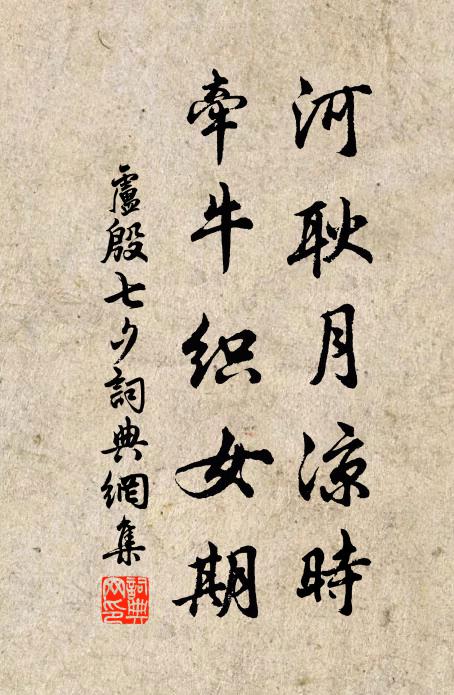 河耿月凉時
牽牛织女期
盧殷七夕詞典網集
詞典
网印